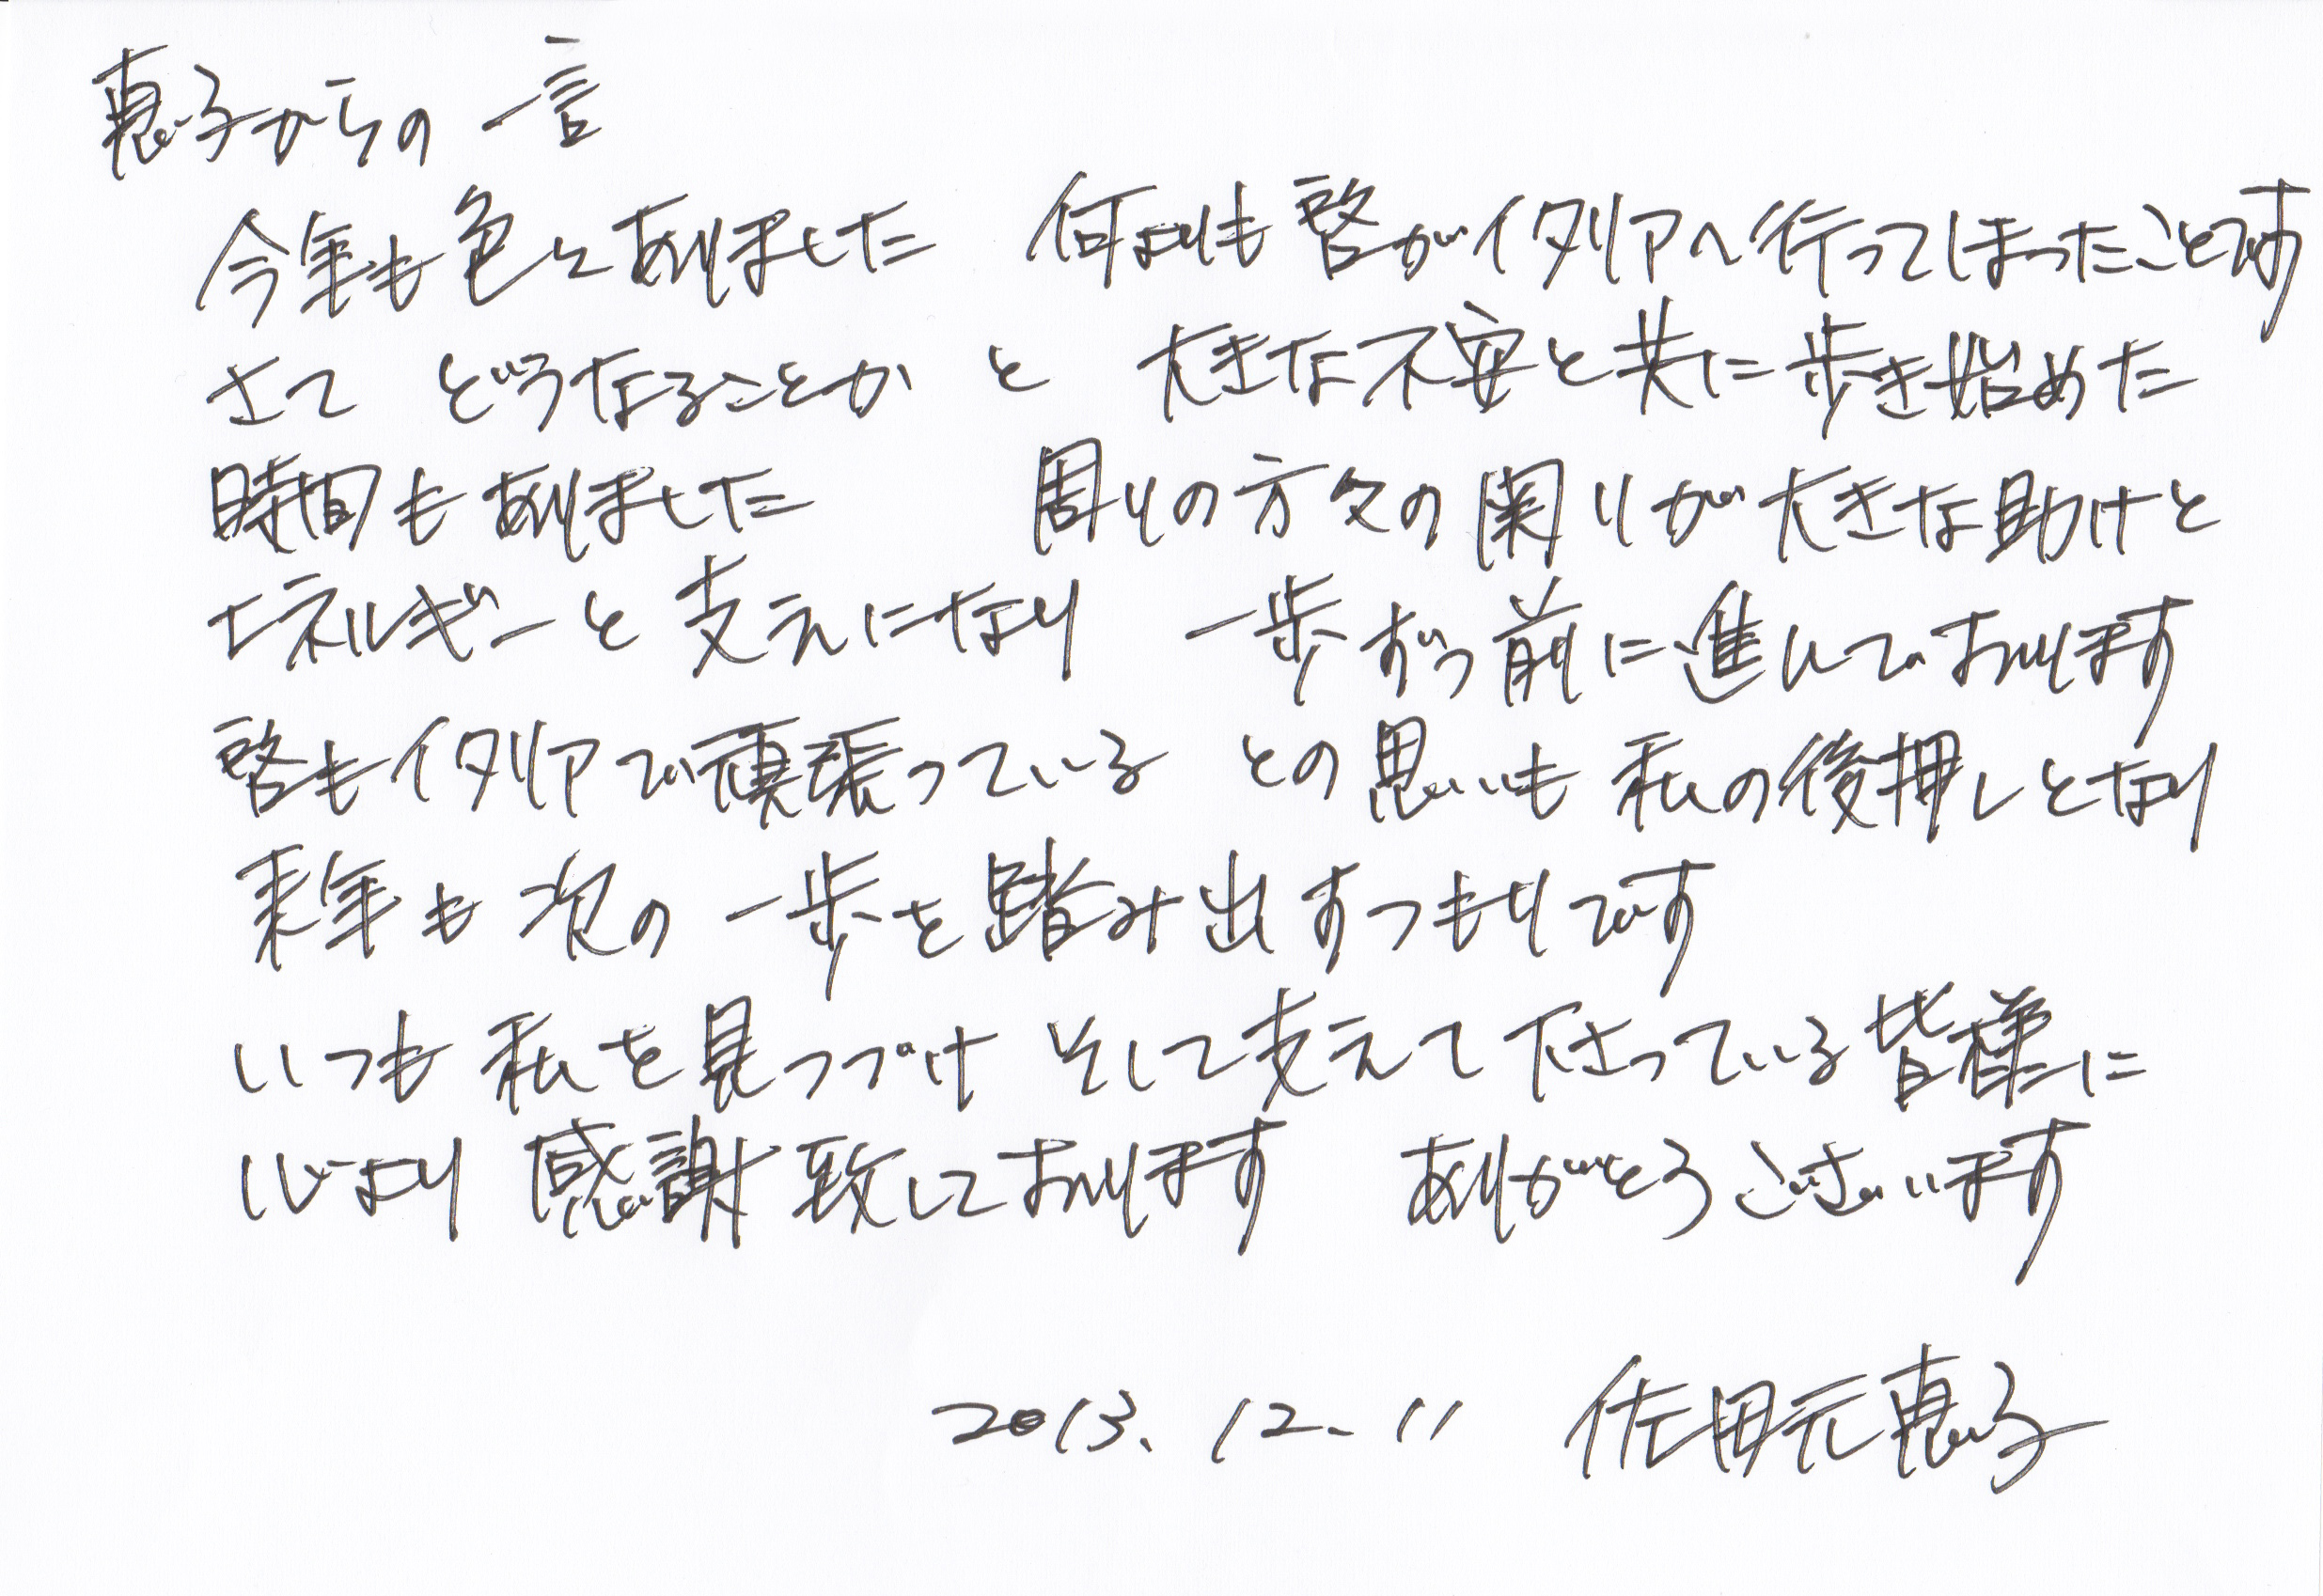 恵子からの 一言
今年も色々ありました 何よりも啓がイタリアへ行ってしまったことです
さて どうなることか と 大きな不安と共に歩き始めた
時間もありました 周りの方々の関りが大きな助けと
エネルギーと支えになり 一歩ずつ前に進んでおります
啓もイタリアで頑張っている との思いも私の後押しとなり
来年も次の一歩を踏み出すつもりです
いつも私を見つづけ そして支えて下さっている皆様に
心より感謝致しております ありがとうございます
2013.12.11 佐田元恵子